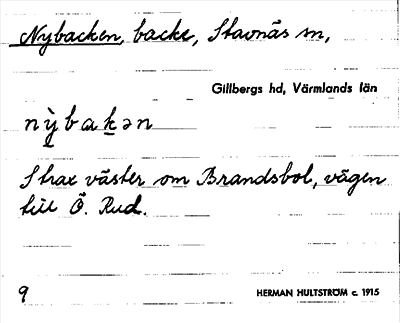 Nybacken, backe, Stavnäs sn,
Gillbergs hd, Värmlands län
nỳbakən
Strax väster om Brandsbol, vägen
till Ö. Rud.
9
HERMAN HULTSTRÖM c. 1915